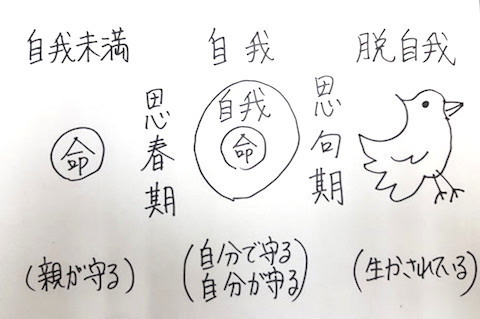 自我未満
命
(親が守る)
思春期
自我
自我
命
(自分で守る
自分が守る)
思句期
脱自我
(生かされている)